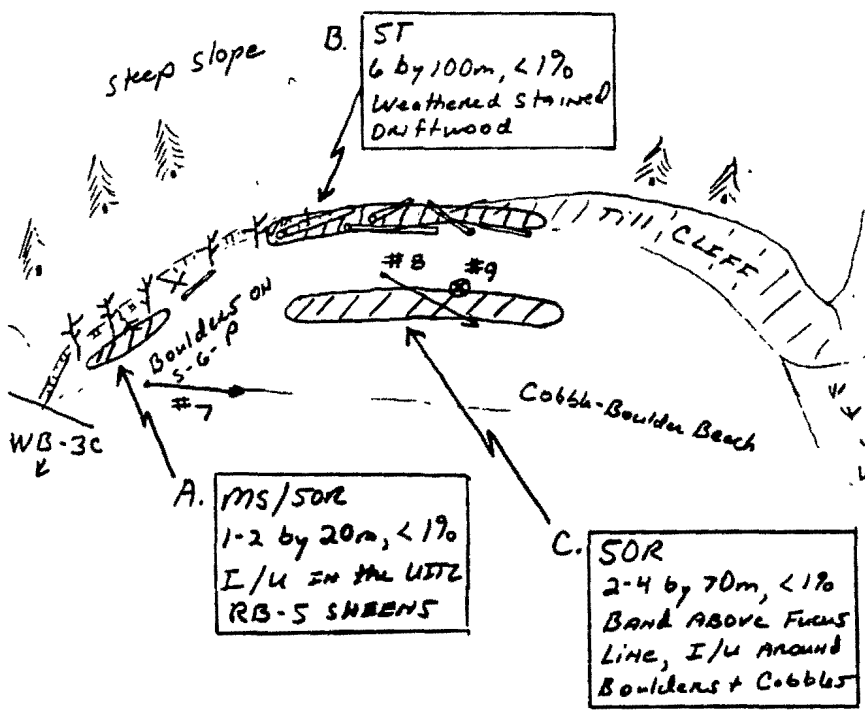 B.
ST
6 by 100m, <1%
Weathered Stained
Driftwood
steep slope
Till, CLEFF
#8
#9
Boulders on
S-G-P
#7
Cobble-Boulder Beach
WB-3c
A.
MS/SOR
1-2 by 20m, <1%
I/U IN the UITZ
RB-5 SHEENS
C.
SOR
2-4 by 70m, <1%
BAND ABOVE Fucus
Line, I/U AROUND
Boulders + Cobbles